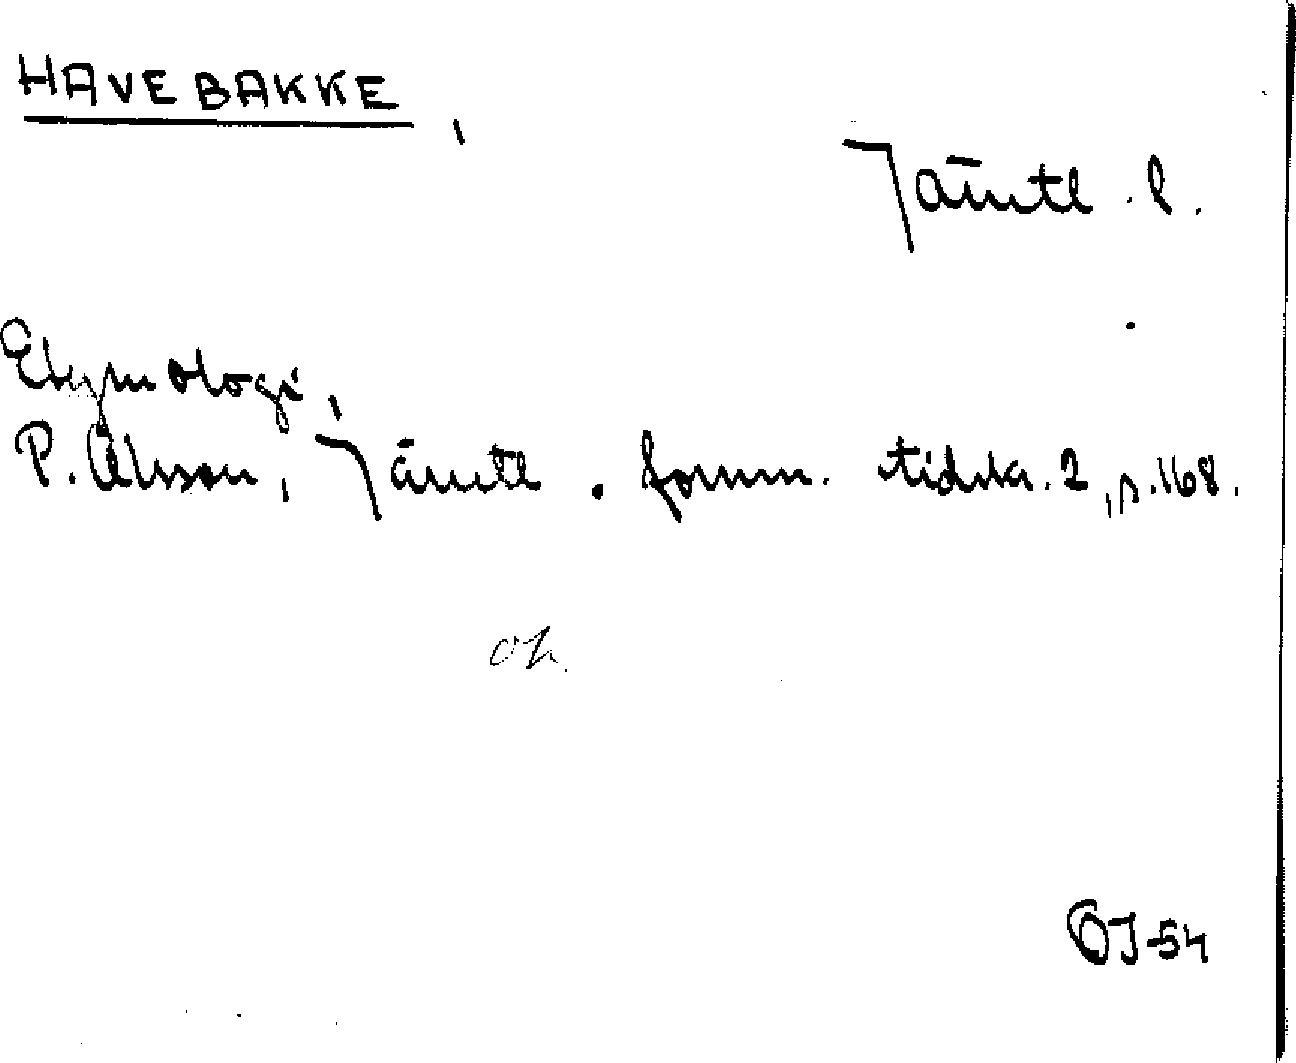 HAVEBAKKE,
Jämtl. l.
Etymologi,
P. Olsson, Jämtl. fornm. tidskr. 2, s. 168.
OJ-54